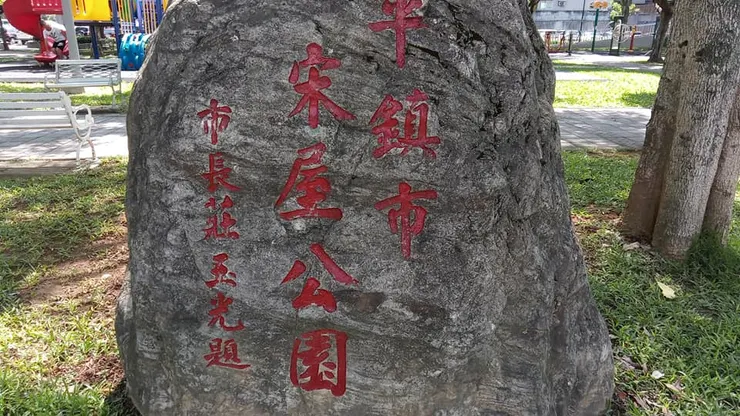 平鎮市
宋屋公園
市長莊玉光題